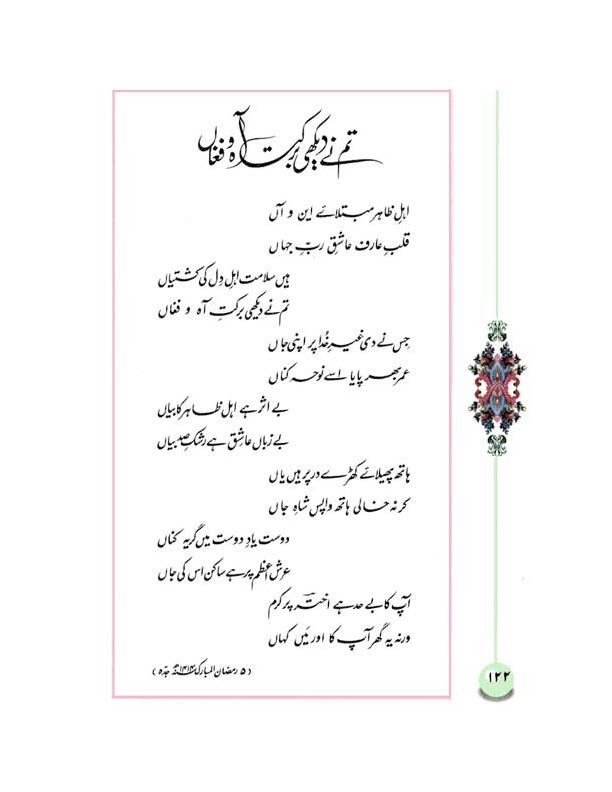 تم نے دیکھی برکت آہ و فغاں
اہلِ ظاہر مبتلائے این و آں
قلبِ عارف عاشقِ ربِّ جہاں
ہیں سلامت اہلِ دل کی کشتیاں
تم نے دیکھی برکتِ آہ و فغاں
جس نے دی غیرِ خُدا پر اپنی جاں
عمر بھر پایا اسے نوحہ کناں
بے اثر ہے اہلِ ظاہر کا بیاں
بے زباں عاشق ہے رشکِ صد بیاں
ہاتھ پھیلائے کھڑے در پر ہیں یاں
کر نہ خالی ہاتھ واپس شاہِ جاں
دوست یادِ دوست میں گریہ کناں
عرشِ اعظم پر ہے ساکن اس کی جاں
آپ کا بے حد ہے اخترؔ پر کرم
ورنہ یہ گھر آپ کا اور مَیں کہاں
(۵ رمضان المبارک جدّہ)
۱۲۲